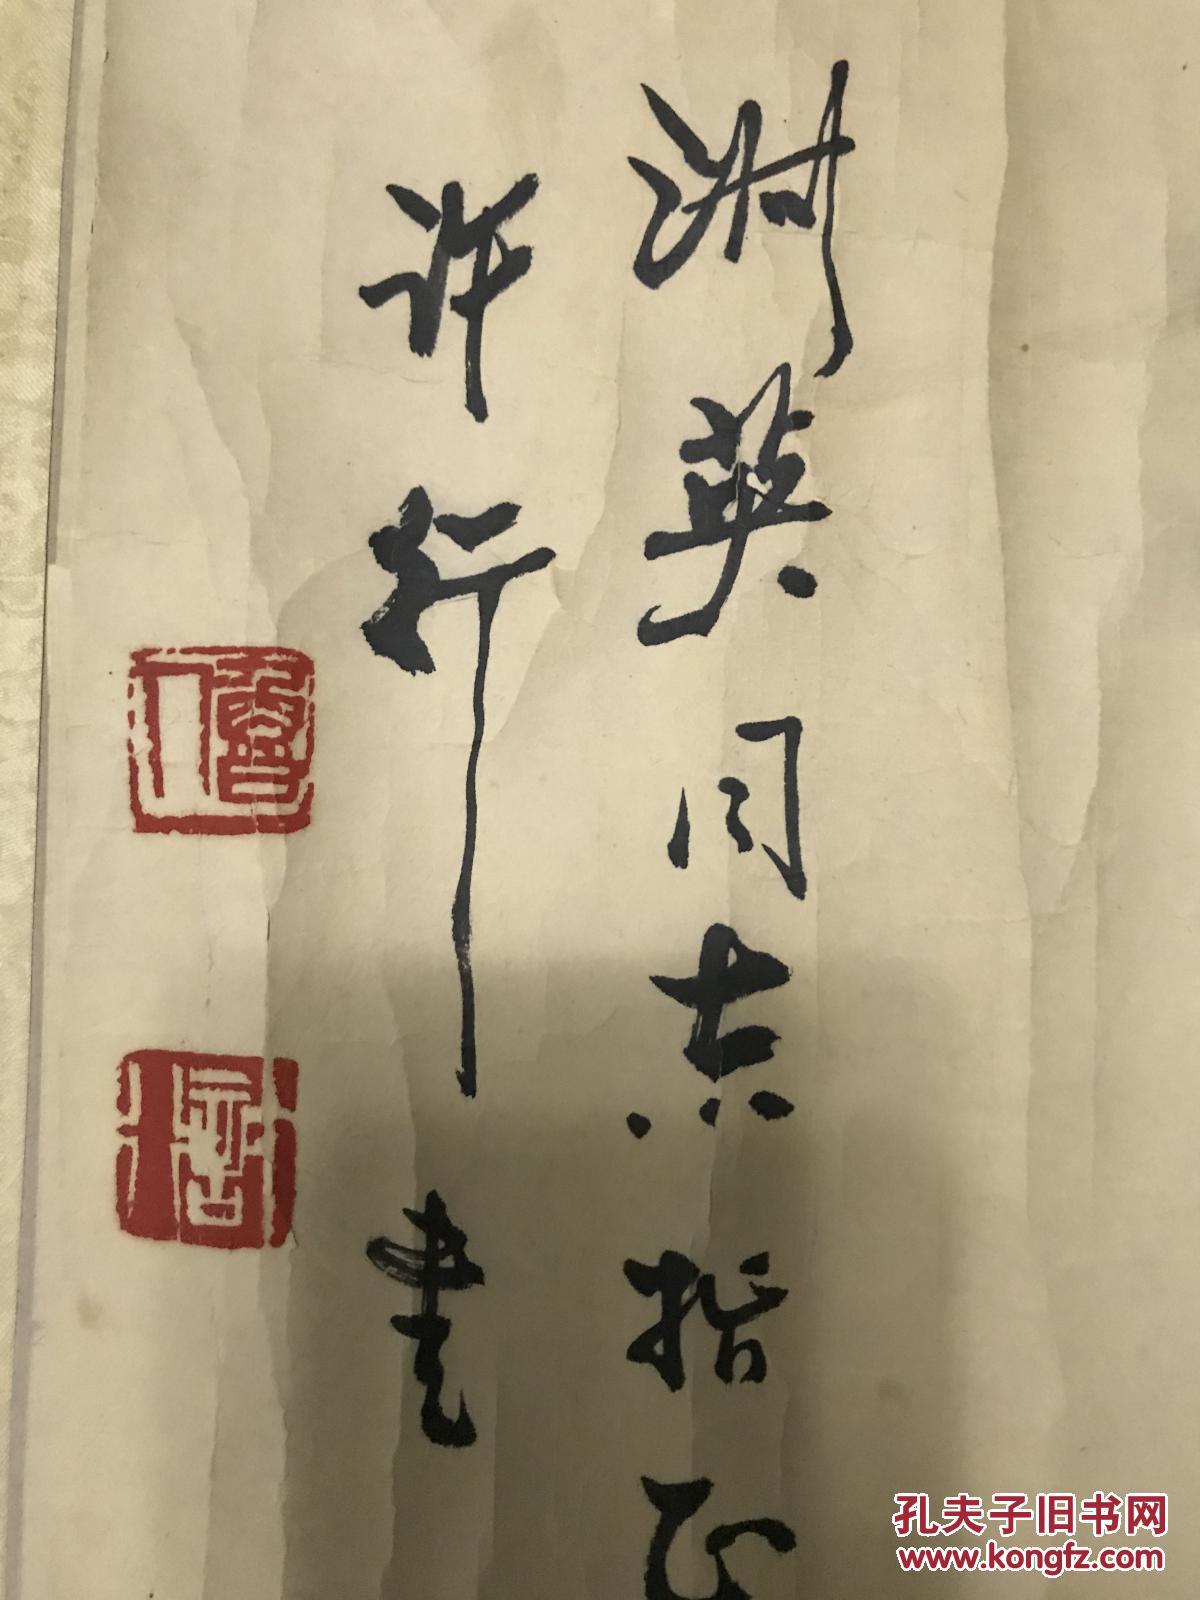 淑英同志指正
许行书
孔夫子旧书网
www.kongfz.com